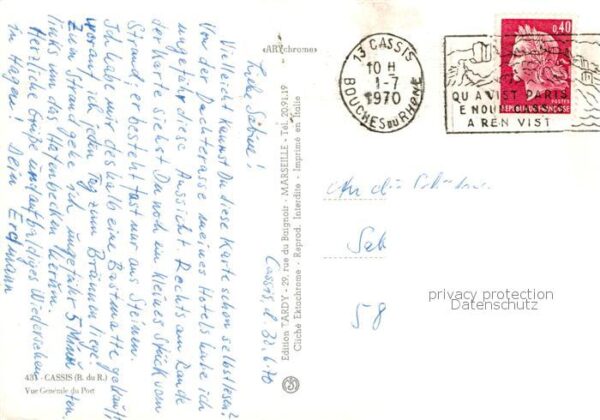 Cassis, d. 30.6.70
Liebe Sabine!
Vielleicht kannst Du diese Karte schon selbst lesen?
Von der Hotelterrasse meines Hotels habe ich
ungefähr diese Aussicht. Rechts am Rande
der Karte siehst Du noch ein kleines Stück vom
Strand; er besteht fast nur aus Steinen.
Ich habe mir deshalb eine Bastmatte gekauft,
worauf ich jeden Tag zum Bräunen liege.
Zum Strand gehe ich ungefähr 5 Minuten
links um das Hafenbecken herum.
Herzliche Grüße und auf baldiges Wiedersehen
in Hagen Dein Erdmann
431 - CASSIS (B. du R.)
Vue Générale du Port
«ARYchrome»
Edition TARDY - 29, rue du Baignoir - MARSEILLE - Tél. 20.91.19
Cliché Ektachrome - Reprod. Interdite - Imprimé en Italie
13 CASSIS
10 H
1-7
1970
BOUCHES DU RHONE
QU A VIST PARIS
E NOUN CASSIS
A REN VIST
0,40
POSTES
REPUBLIQUE FRANCAISE
An die
58
privacy protection
Datenschutz